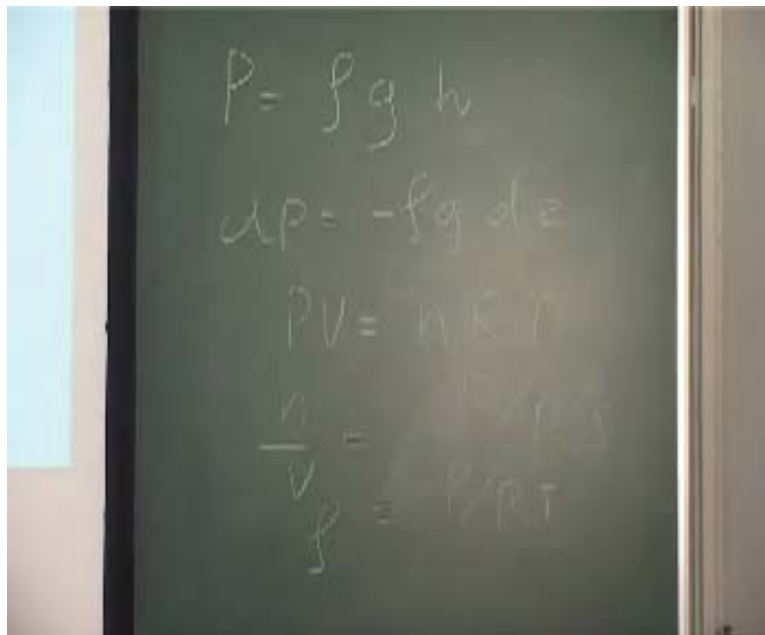 P = ρ g h
dp = -ρ g dz
PV = n R T
n/V = P/RT
ρ = P/RT